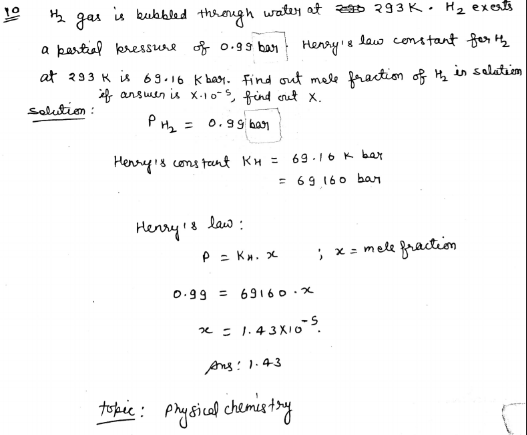 10 H2 gas is bubbled through water at 293 K. H2 exerts
a partial pressure of 0.99 bar. Henry's law constant for H2
at 293 K is 69.16 K bar. Find out mole fraction of H2 in solution
if answer is X.10⁻⁵, find out X.
Solution:
P H2 = 0.99 bar
Henry's constant KH = 69.16 K bar
= 69160 bar
Henry's law:
P = KH. x ; x = mole fraction
0.99 = 69160 . x
x = 1.43X10⁻⁵.
Ans: 1.43
topic: physical chemistry